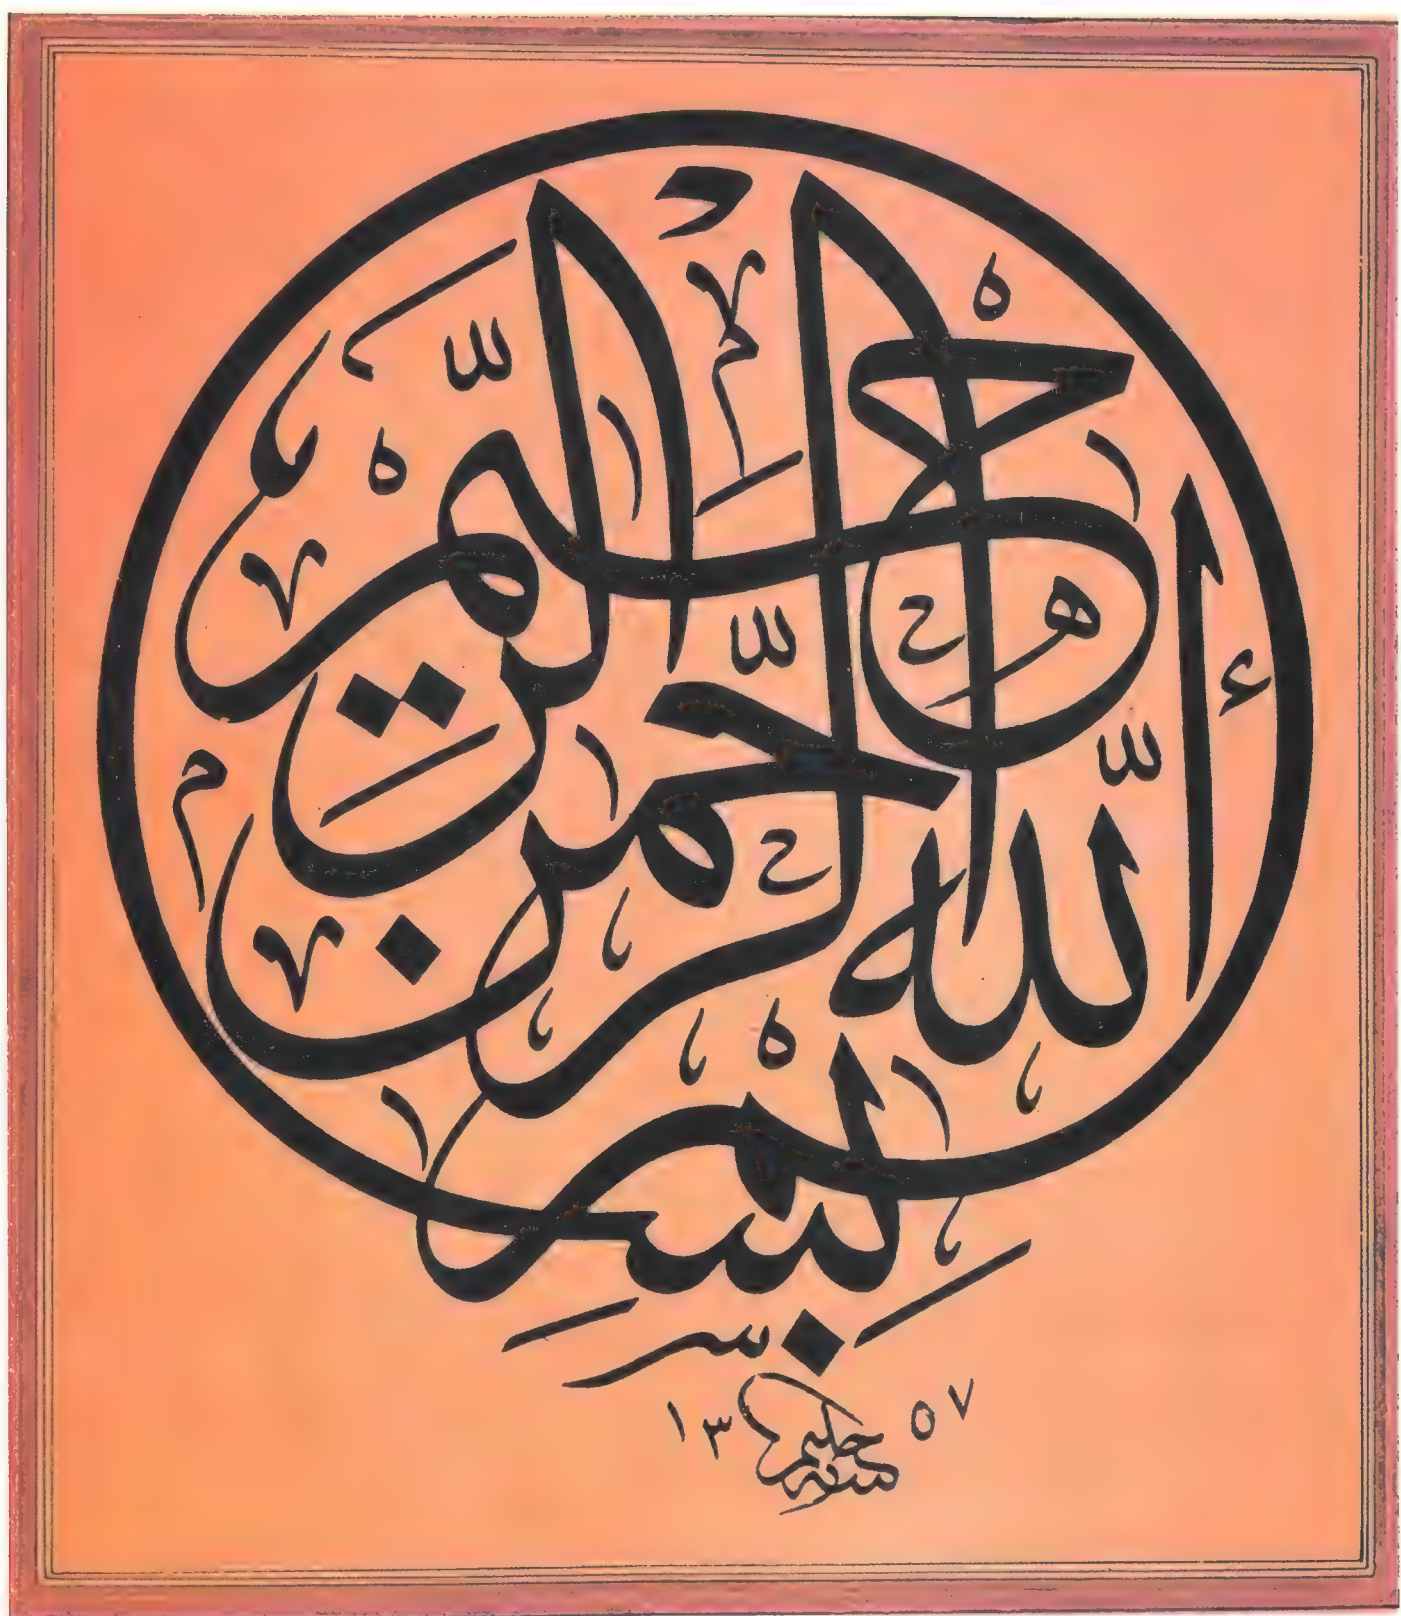 بسم الله الرحمن الرحيم
حليم
١٣٥٧